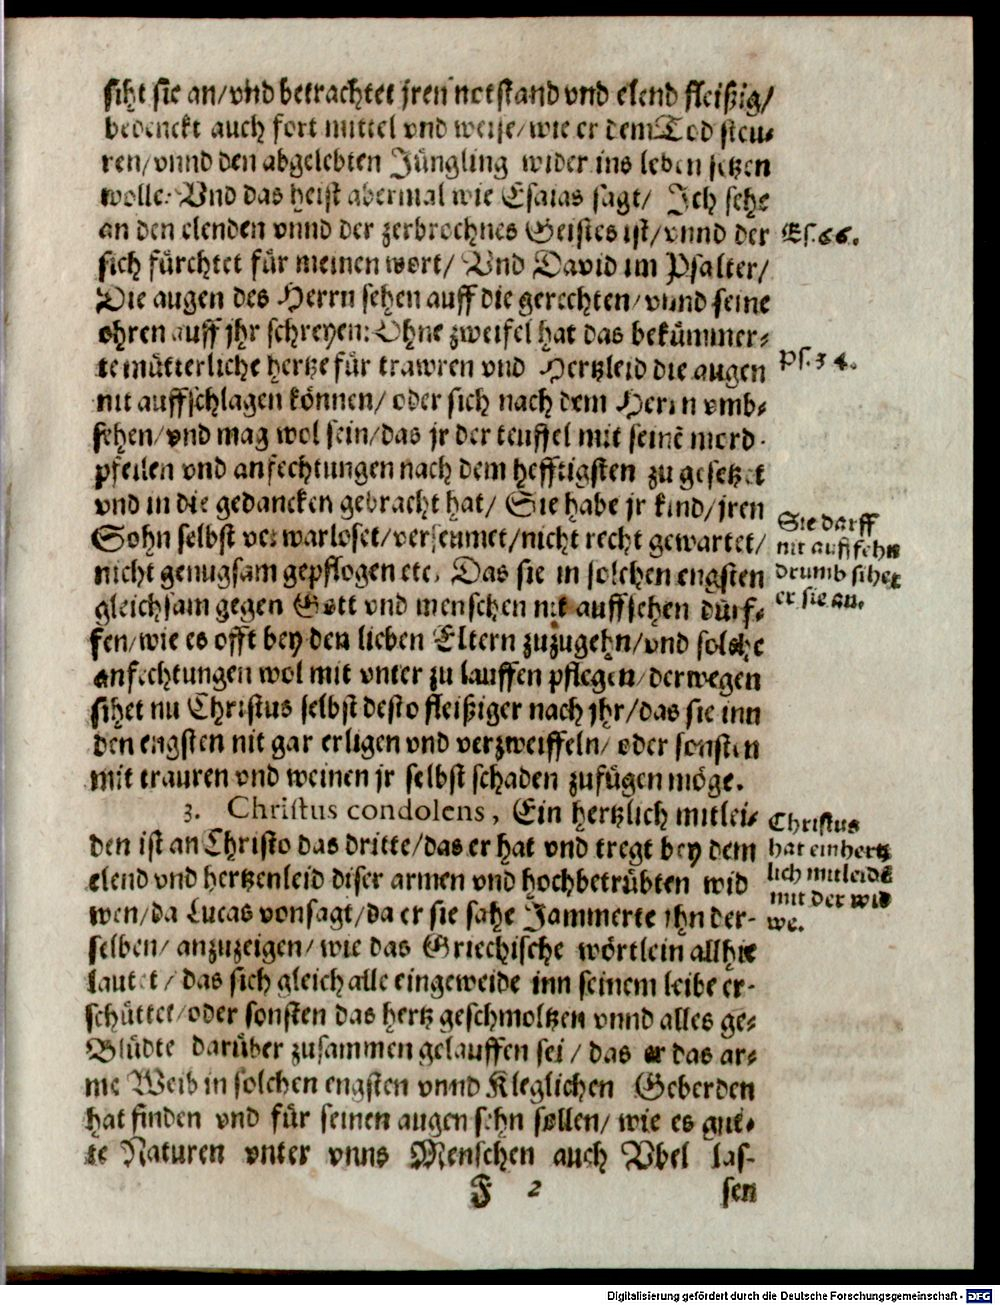 siht sie an/vnd betrachtet jren notstand vnd elend fleißig/
bedenckt auch fort mittel vnd weise/wie er dem Tod steu-
ren/vnnd den abgelebten Jüngling wider ins leben setzen
wolle: Vnd das heist abermal wie Esaias sagt/ Ich sehe
an den elenden vnnd der zerbrochnes Geistes ist/vnnd der
Es. 66.
sich fürchtet für meinen wort/ Vnd David im Psalter/
Die augen des Herrn sehen auff die gerechten/vnnd seine
ohren auff jhr schreyen: Ohne zweifel hat das bekümmer-
te mütterliche hertze für trawren vnd Hertzleid die augen
Ps. 34.
nit auffschlagen können/ oder sich nach dem Herrn vmb-
sehen/vnd mag wol sein/das jr der teuffel mit seinē mord-
pfeilen vnd anfechtungen nach dem hefftigsten zu gesetzet
vnd in die gedancken gebracht hat/ Sie habe jr kind/jren
Sohn selbst verwarloset/verseumet/nicht recht gewartet/
nicht genugsam gepflogen etc. Das sie in solchen engsten
gleichsam gegen Gott vnd menschen nit auffsehen dürf-
Sie darff
nit auff sehn
drumb sihet
er sie an.
fen/wie es offt bey den lieben Eltern zuzugehn/vnd solche
anfechtungen wol mit vnter zu lauffen pflegen/derwegen
sihet nu Christus selbst desto fleißiger nach jhr/das sie inn
den engsten nit gar erligen vnd verzweiffeln/ oder sonsten
mit trauren vnd weinen jr selbst schaden zufügen möge.
3. Christus condolens, Ein hertzlich mitlei-
den ist an Christo das dritte/das er hat vnd tregt bey dem
elend vnd hertzenleid diser armen vnd hochbetrübten wid
wen/da Lucas von sagt/da er sie sahe Jammerte jhn der-
Christus
hat ein hertz
lich mitleidē
mit der wid
we.
selben/ anzuzeigen/ wie das Griechische wörtlein allhie
lautet/ das sich gleich alle eingeweide inn seinem leibe er-
schüttet/oder sonsten das hertz geschmoltzen vnnd alles ge-
Blüdte darüber zusammen gelauffen sei/ das er das ar-
me Weib in solchen engsten vnnd Kleglichen Geberden
hat finden vnd für seinen augen sehn sollen/ wie es gut-
te Naturen vnter vnns Menschen auch Vbel las-
J 2 sen
Digitalisierung gefördert durch die Deutsche Forschungsgemeinschaft - DFG